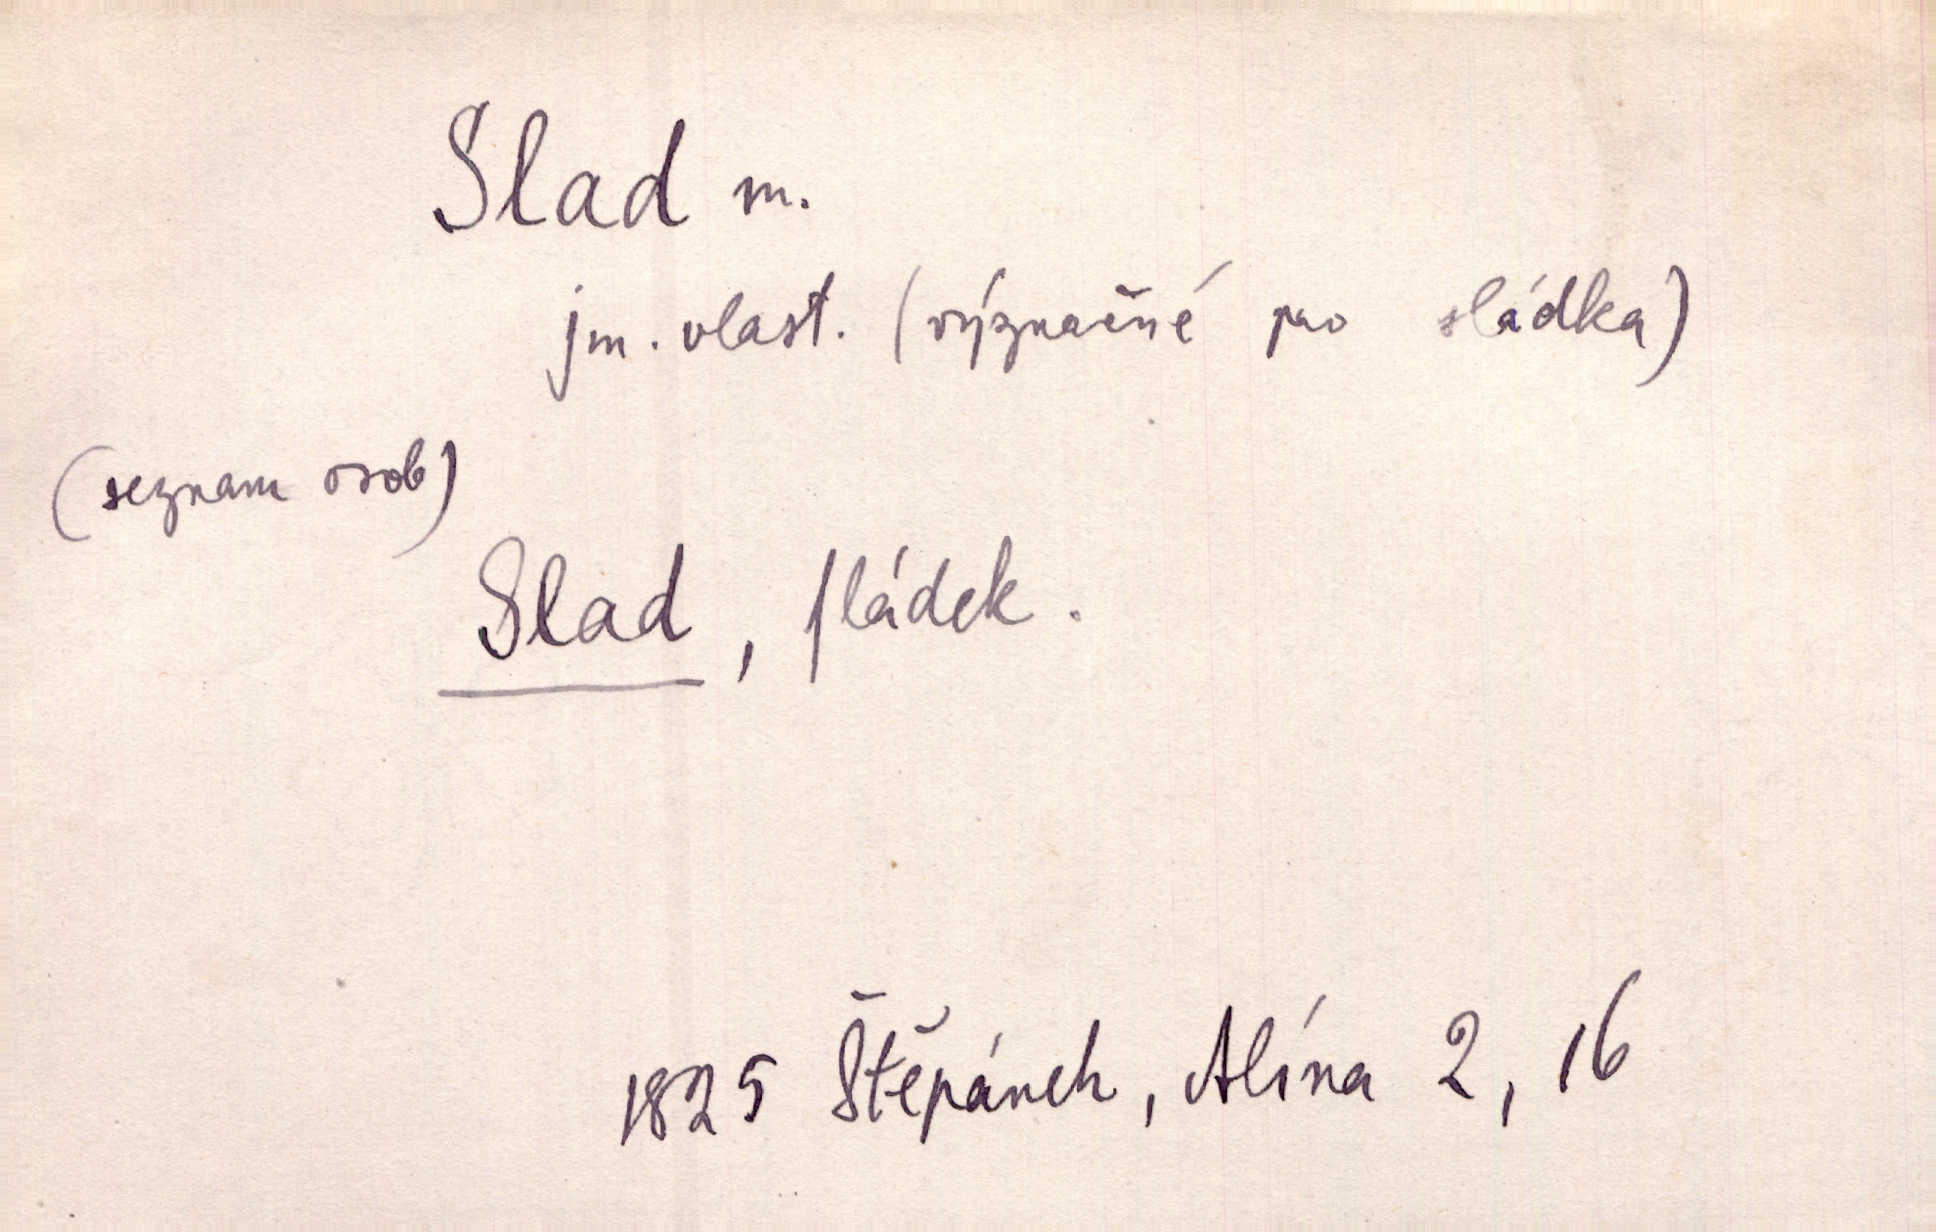 Slad m.
jm. vlast. (význačné pro sládka)
(seznam osob)
Slad, ſládek.
1825 Štěpánek, Alína 2, 16